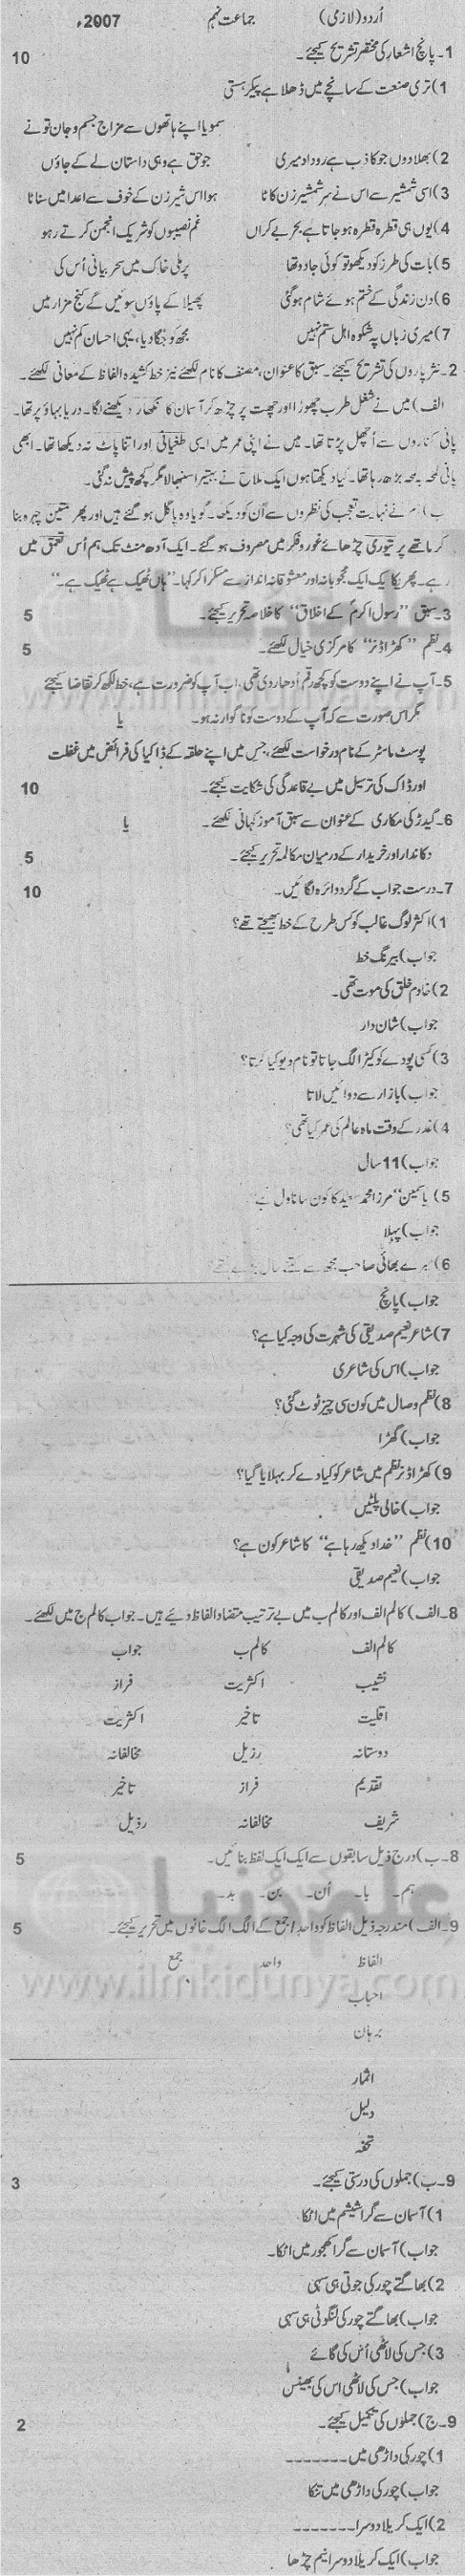 اُردو (لازمی) جماعت نہم 2007ء
1۔ پانچ اشعار کی مختصر تشریح کیجئے۔ 10
1) تری صنعت کے سانچے میں ڈھلا ہے پیکر ہستی
سمویا اپنے ہاتھوں سے مزاج جسم و جان تو نے
2) بھلا دوں جو کاذب ہے روداد میری جو حق ہے وہی داستان لے کے جاؤں
3) اسی شمشیر سے اس نے سر شمشیر زن کاٹا ہوا اس شیر زن کے خوف سے اعدا میں سناٹا
4) یوں ہی قطرہ قطرہ ہو جاتا ہے بحر بے کراں غم نصیبوں کو شریک انجمن کرتے رہو
5) بات کی طرز کو دیکھو تو کوئی جادو تھا پر ملی خاک میں سحر بیانی اُس کی
6) دن زندگی کے ختم ہوئے شام ہو گئی پھیلا کے پاؤں سوئیں گے کنج مزار میں
7) میری زباں پہ شکوہ اہل ستم نہیں مجھ کو جگا دیا، یہی احسان کم نہیں
2۔ نثر پاروں کی تشریح کیجئے۔ سبق کا عنوان، مصنف کا نام لکھئے نیز خط کشیدہ الفاظ کے معانی لکھئے۔
الف) میں نے شغل طرب چھوڑا اور چھت پر چڑھ کر آسمان کا نکھار دیکھنے لگا۔ دریا بہاؤ پر تھا۔
پانی کناروں سے اُچھل پڑتا تھا۔ میں نے اپنی عمر میں ایسی طغیانی اور اتنا پاٹ نہ دیکھا تھا۔ ابھی
پانی لمحہ بہ لمحہ بڑھ رہا تھا۔ کیا دیکھتا ہوں ایک ملاح نے بہتیرا سنبھالا مگر کچھ پیش نہ گئی۔
ب) نے نہایت تعجب کی نظروں سے اُن کو دیکھا۔ گویا وہ پاگل ہو گئے ہیں اور پھر متین چہرہ بنا
کر ماتھے پر تیوری چڑھائے غور و فکر میں مصروف ہو گئے۔ ایک آدھ منٹ تک ہم اُس تعمق میں
رہے۔ پھر یکا یک ایک محجوبانہ اور معشوقانہ انداز سے مسکرا کر کہا۔ "ہاں ٹھیک ہے ٹھیک ہے۔"
3۔ سبق "رسول اکرمؐ کے اخلاق" کا خلاصہ تحریر کیجئے۔ 5
4۔ نظم "کھڑا ڈنر" کا مرکزی خیال لکھئے۔ 5
5۔ آپ نے اپنے دوست کو کچھ رقم اُدھار دی تھی، اب آپ کو ضرورت ہے، خط لکھ کر تقاضا کیجئے
مگر اس صورت سے کہ آپ کے دوست کو ناگوار نہ ہو۔ یا
پوسٹ ماسٹر کے نام درخواست لکھئے، جس میں اپنے حلقہ کے ڈاکیا کی فرائض میں غفلت
اور ڈاک کی ترسیل میں بے قاعدگی کی شکایت کیجئے۔ 10
6۔ گیدڑ کی مکاری کے عنوان سے سبق آموز کہانی لکھئے۔ یا
دکاندار اور خریدار کے درمیان مکالمہ تحریر کیجئے۔ 5
7۔ درست جواب کے گرد دائرہ لگائیں۔ 10
1) اکثر لوگ غالب کو کس طرح کے خط بھیجتے تھے؟
جواب) بیرنگ خط
2) خادم خلق کی موت تھی۔
جواب) شان دار
3) کسی پودے کو کیڑا لگ جاتا تو نام دیو کیا کرتا؟
جواب) بازار سے دوائیں لاتا
4) غدر کے وقت ماہ عالم کی عمر کیا تھی؟
جواب) 11 سال
5) یاسمین" مرزا محمد سعید کا کون سا ناول ہے
جواب) پہلا
6) میرے بھائی صاحب مجھ سے کتنے سال بڑے تھے؟
جواب) پانچ
7) شاعر نعیم صدیقی کی شہرت کی وجہ کیا ہے؟
جواب) اس کی شاعری
8) نظم وصال میں کون سی چیز ٹوٹ گئی؟
جواب) گھڑا
9) کھڑا ڈنر نظم میں شاعر کو کیا دے کر بہلایا گیا؟
جواب) خالی پلیٹیں
10) نظم "خدا دیکھ رہا ہے" کا شاعر کون ہے؟
جواب) نعیم صدیقی
8۔ الف) کالم الف اور کالم ب میں بے ترتیب متضاد الفاظ دیئے ہیں۔ جواب کالم ج میں لکھئے۔
کالم الف کالم ب جواب
نشیب اکثریت فراز
اقلیت تاخیر اکثریت
دوستانہ رزیل مخالفانہ
تقدیم فراز تاخیر
شریف مخالفانہ رذیل
8۔ ب) درج ذیل سابقوں سے ایک ایک لفظ بنائیں۔ 5
ہم۔ با۔ اُن۔ بن۔ بد۔
9۔ الف) مندرجہ ذیل الفاظ کو واحد / جمع کے الگ الگ خانوں میں تحریر کیجئے۔ 5
الفاظ واحد جمع
احباب
برہان
اثمار
دلیل
تحفہ
9۔ ب) جملوں کی درستی کیجئے۔ 3
1) آسمان سے گرا شیشم میں اٹکا
جواب) آسمان سے گرا کھجور میں اٹکا۔
2) بھاگتے چور کی جوتی ہی سہی
جواب) بھاگتے چور کی لنگوٹی ہی سہی
3) جس کی لاٹھی اُس کی گائے
جواب) جس کی لاٹھی اس کی بھینس
9۔ ج) جملوں کی تکمیل کیجئے۔ 2
1) چور کی داڑھی میں -------
جواب) چور کی داڑھی میں تنکا
2) ایک کریلا دوسرا -------
جواب) ایک کریلا دوسرا نیم چڑھا
علم کی دنیا
www.ilmkidunya.com